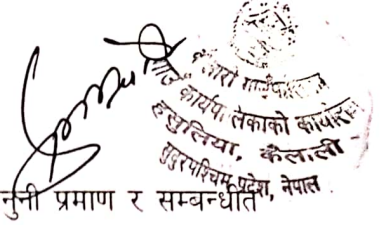 कैलारी गाउँपालिका
गाउँ कार्यपालिकाको कार्यालय
हसुलिया, कैलाली
सुदुरपश्चिम प्रदेश, नेपाल
नुनी प्रमाण र सम्बन्धीत